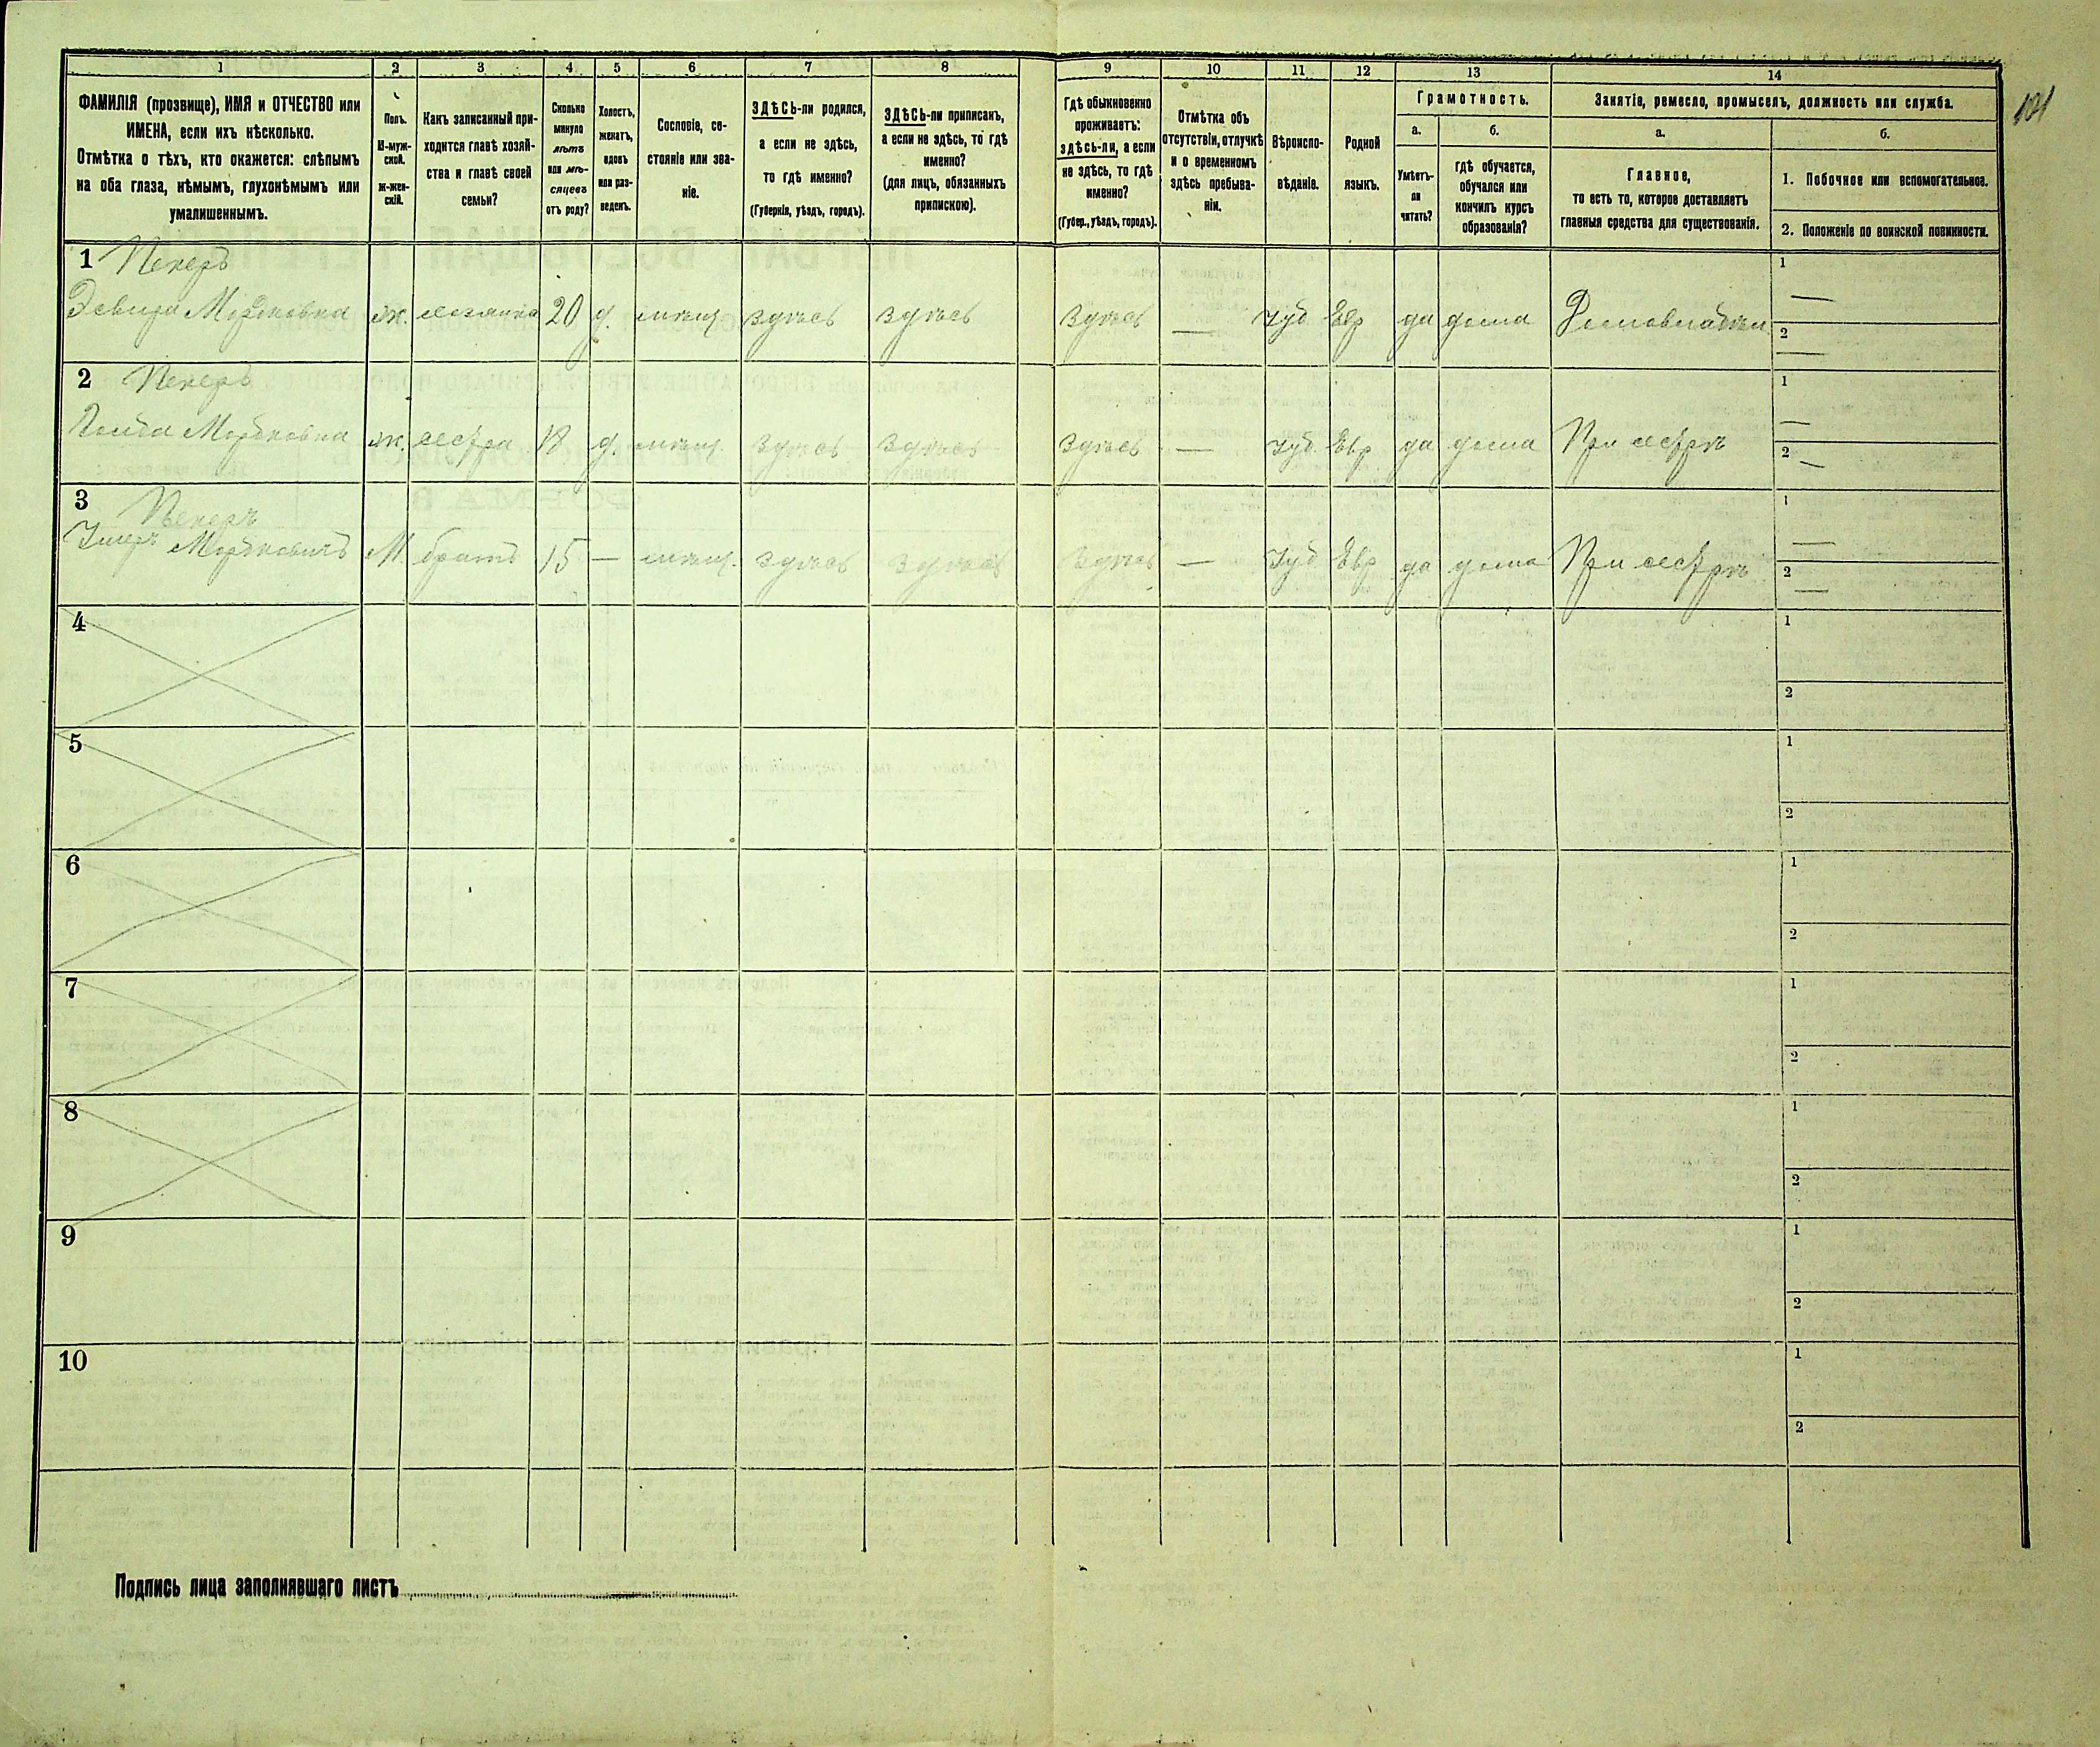 101
1
2
3
4
5
6
7
8
9
10
11
12
13
14
ФАМИЛІЯ (прозвище), ИМЯ и ОТЧЕСТВО или
ИМЕНА, если ихъ нѣсколько.
Отмѣтка о тѣхъ, кто окажется: слѣпымъ
на оба глаза, нѣмымъ, глухонѣмымъ или
умалишеннымъ.
Полъ.
М-муж-
ской.
Ж-жен-
скій.
Какъ записанный при-
ходится главѣ хозяй-
ства и главѣ своей
семьи?
Сколько
минуло
лѣтъ
или мѣ-
сяцевъ
отъ роду?
Холостъ,
женатъ,
вдовъ
или раз-
веденъ.
Сословіе, со-
стояніе или зва-
ніе.
ЗДѢСЬ-ли родился,
а если не здѣсь,
то гдѣ именно?
(Губернія, уѣздъ, городъ).
ЗДѢСЬ-ли приписанъ,
а если не здѣсь, то гдѣ
именно?
(для лицъ, обязанныхъ
припискою).
Гдѣ обыкновенно
проживаетъ:
здѣсь-ли, а если
не здѣсь, то гдѣ
именно?
(Губер., уѣздъ, городъ).
Отмѣтка объ
отсутствіи, отлучкѣ
и о временномъ
здѣсь пребыва-
ніи.
Вѣроиспо-
вѣданіе.
Родной
языкъ.
Грамотность.
а.
Умѣетъ-
ли
читать?
б.
Гдѣ обучается,
обучался или
кончилъ курсъ
образованія?
Занятіе, ремесло, промыселъ, должность или служба.
а.
Главное,
то есть то, которое доставляетъ
главныя средства для существованія.
б.
1. Побочное или вспомогательное.
2. Положеніе по воинской повинности.
1 Пекеръ
Мордковна ж. хозяйка 20 д. мѣщ здѣсь здѣсь здѣсь — Іуд Евр да дома 1 —
2 —
2 Пекеръ
Мордковна ж. сестра д. мѣщ. здѣсь здѣсь здѣсь — Іуд. Евр да дома При сестрѣ 1 —
2 —
3 Пекеръ
Мордковичъ М братъ 15 — мѣщ. здѣсь здѣсь здѣсь — Іуд Евр да дома При сестрѣ 1 —
2 —
4 1
2
5 1
2
6 1
2
7 1
2
8 1
2
9 1
2
10 1
2
Подпись лица заполнявшаго листъ